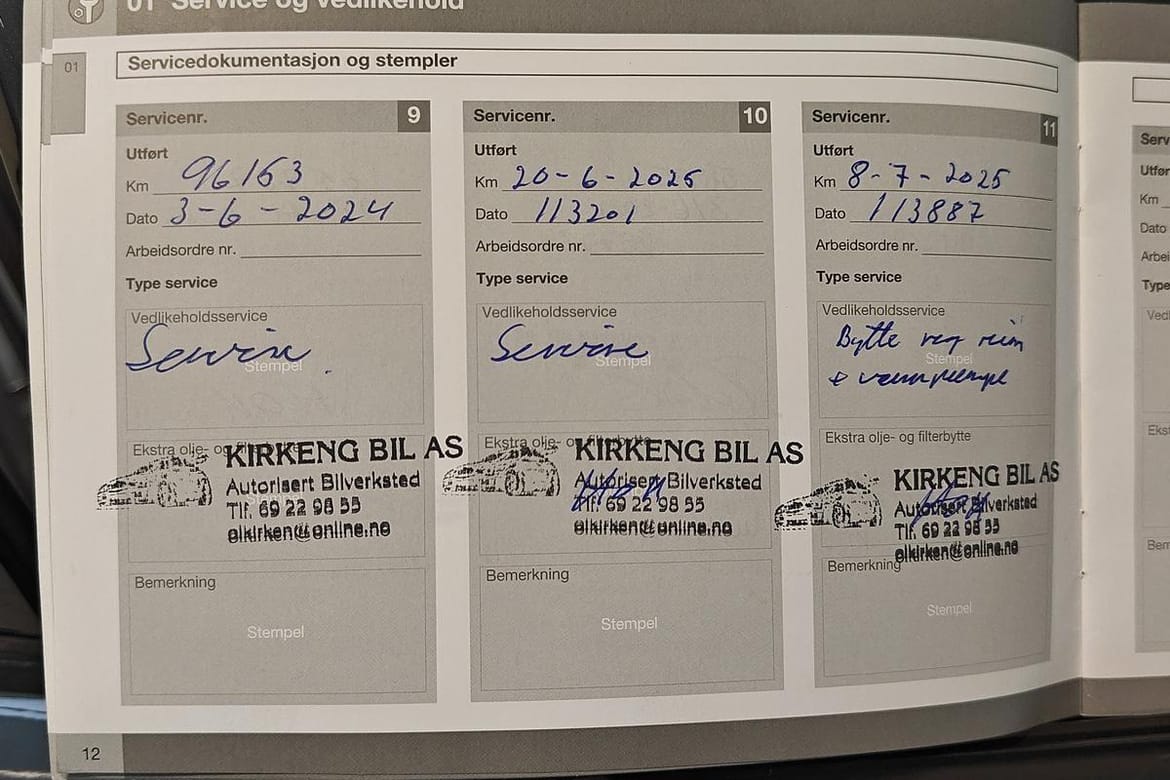 01 Service og vedlikehold
01
Servicedokumentasjon og stempler
Servicenr. 9
Utført
Km 96163
Dato 3-6-2024
Arbeidsordre nr.
Type service
Vedlikeholdsservice
Service
Stempel
Ekstra olje- og filterbytte
KIRKENG BIL AS
Autorisert Bilverksted
Tlf. 69 22 98 55
olkirken@online.no
Bemerkning
Stempel
Servicenr. 10
Utført
Km 20-6-2025
Dato 113201
Arbeidsordre nr.
Type service
Vedlikeholdsservice
Service
Stempel
Ekstra olje- og filterbytte
KIRKENG BIL AS
Autorisert Bilverksted
Tlf. 69 22 98 55
olkirken@online.no
Bemerkning
Stempel
Servicenr. 11
Utført
Km 8-7-2025
Dato 113887
Arbeidsordre nr.
Type service
Vedlikeholdsservice
Bytte reg reim
Stempel
+ vannpumpe
Ekstra olje- og filterbytte
KIRKENG BIL AS
Autorisert Bilverksted
Tlf. 69 22 98 55
olkirken@online.no
Bemerkning
Stempel
12
Serv
Utfør
Km
Dato
Arbei
Type
Vedl
Ekst
Bem